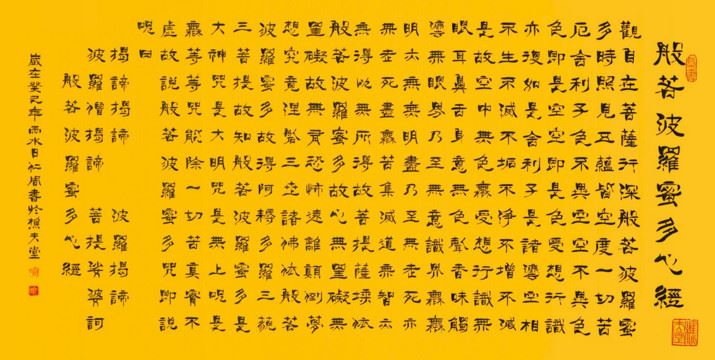 般若波羅蜜多心經
觀自在菩薩行深般若波羅蜜
多時照見五蘊皆空度一切苦
厄舍利子色不異空空不異色
色即是空空即是色受想行識
亦復如是舍利子是諸法空相
不生不滅不垢不淨不增不減
是故空中無色無受想行識無
眼耳鼻舌身意無色聲香味觸
法無眼界乃至無意識界無無
明亦無無明盡乃至無老死亦
無老死盡無苦集滅道無智亦
無得以無所得故菩提薩埵依
般若波羅蜜多故心無罣礙無
罣礙故無有恐怖遠離顛倒夢
想究竟涅槃三世諸佛依般若
波羅蜜多故得阿耨多羅三藐
三菩提故知般若波羅蜜多是
大神咒是大明咒是無上咒是
無等等咒能除一切苦真實不
虛故說般若波羅蜜多咒即說
咒曰
揭諦揭諦 波羅揭諦
波羅僧揭諦 菩提娑婆訶
般若波羅蜜多心經
歲在癸巳年雨水日